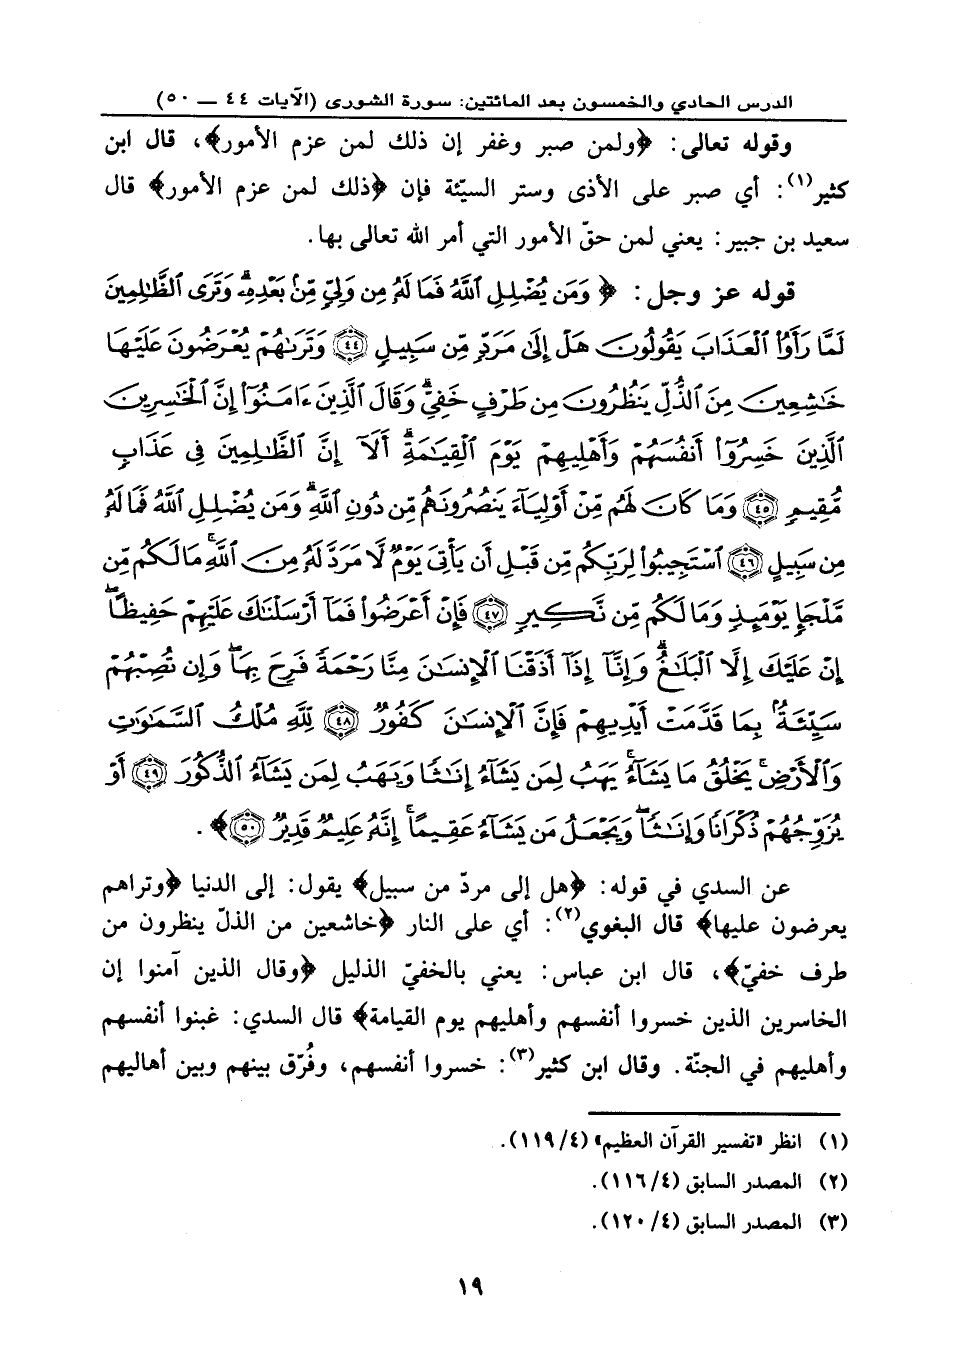 الدرس الحادي والخمسون بعد المائتين: سورة الشورى (الآيات ٤٤ — ٥٠)
وقوله تعالى: ﴿ولمن صبر وغفر إن ذلك لمن عزم الأمور﴾، قال ابن
كثير(١): أي صبر على الأذى وستر السيّئة فإن ﴿ذلك لمن عزم الأمور﴾ قال
سعيد بن جبير: يعني لمن حقّ الأمور التي أمر الله تعالى بها.
قوله عز وجل: ﴿ وَمَن يُضْلِلِ ٱللَّهُ فَمَا لَهُۥ مِن وَلِيٍّ مِّنۢ بَعْدِهِۦۗ وَتَرَى ٱلظَّٰلِمِينَ
لَمَّا رَأَوُا۟ ٱلْعَذَابَ يَقُولُونَ هَلْ إِلَىٰ مَرَدٍّ مِّن سَبِيلٍ ﴿٤٤﴾ وَتَرَىٰهُمْ يُعْرَضُونَ عَلَيْهَا
خَٰشِعِينَ مِنَ ٱلذُّلِّ يَنظُرُونَ مِن طَرْفٍ خَفِيٍّۗ وَقَالَ ٱلَّذِينَ ءَامَنُوٓا۟ إِنَّ ٱلْخَٰسِرِينَ
ٱلَّذِينَ خَسِرُوٓا۟ أَنفُسَهُمْ وَأَهْلِيهِمْ يَوْمَ ٱلْقِيَٰمَةِۗ أَلَآ إِنَّ ٱلظَّٰلِمِينَ فِى عَذَابٍ
مُّقِيمٍ ﴿٤٥﴾ وَمَا كَانَ لَهُم مِّنْ أَوْلِيَآءَ يَنصُرُونَهُم مِّن دُونِ ٱللَّهِۗ وَمَن يُضْلِلِ ٱللَّهُ فَمَا لَهُۥ
مِن سَبِيلٍ ﴿٤٦﴾ ٱسْتَجِيبُوا۟ لِرَبِّكُم مِّن قَبْلِ أَن يَأْتِىَ يَوْمٌ لَّا مَرَدَّ لَهُۥ مِنَ ٱللَّهِۚ مَا لَكُم مِّن
مَّلْجَإٍ يَوْمَئِذٍ وَمَا لَكُم مِّن نَّكِيرٍ ﴿٤٧﴾ فَإِنْ أَعْرَضُوا۟ فَمَآ أَرْسَلْنَٰكَ عَلَيْهِمْ حَفِيظًاۖ
إِنْ عَلَيْكَ إِلَّا ٱلْبَلَٰغُۗ وَإِنَّآ إِذَآ أَذَقْنَا ٱلْإِنسَٰنَ مِنَّا رَحْمَةً فَرِحَ بِهَاۖ وَإِن تُصِبْهُمْ
سَيِّئَةٌۢ بِمَا قَدَّمَتْ أَيْدِيهِمْ فَإِنَّ ٱلْإِنسَٰنَ كَفُورٌ ﴿٤٨﴾ لِّلَّهِ مُلْكُ ٱلسَّمَٰوَٰتِ
وَٱلْأَرْضِۚ يَخْلُقُ مَا يَشَآءُۚ يَهَبُ لِمَن يَشَآءُ إِنَٰثًا وَيَهَبُ لِمَن يَشَآءُ ٱلذُّكُورَ ﴿٤٩﴾ أَوْ
يُزَوِّجُهُمْ ذُكْرَانًا وَإِنَٰثًاۖ وَيَجْعَلُ مَن يَشَآءُ عَقِيمًاۚ إِنَّهُۥ عَلِيمٌ قَدِيرٌ ﴿٥٠﴾﴾.
عن السدي في قوله: ﴿هل إلى مردّ من سبيل﴾ يقول: إلى الدنيا ﴿وتراهم
يعرضون عليها﴾ قال البغوي(٢): أي على النار ﴿خاشعين من الذلّ ينظرون من
طرف خفيّ﴾، قال ابن عباس: يعني بالخفيّ الذليل ﴿وقال الذين آمنوا إن
الخاسرين الذين خسروا أنفسهم وأهليهم يوم القيامة﴾ قال السدي: غبنوا أنفسهم
وأهليهم في الجنّة. وقال ابن كثير(٣): خسروا أنفسهم، وفُرّق بينهم وبين أهاليهم
(١) انظر «تفسير القرآن العظيم» (١١٩/٤).
(٢) المصدر السابق (١١٦/٤).
(٣) المصدر السابق (١٢٠/٤).
١٩